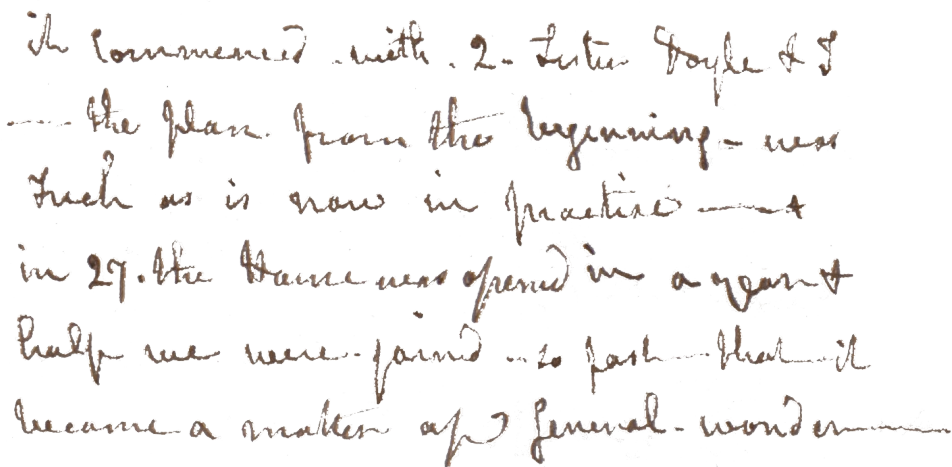 it commenced with . 2 - Sister Doyle & I
— the plan from the beginning - was
Such as is now in practise — &
in 27. the House was opened in a year &
half we were joined so fast that it
became a matter of General wonder —